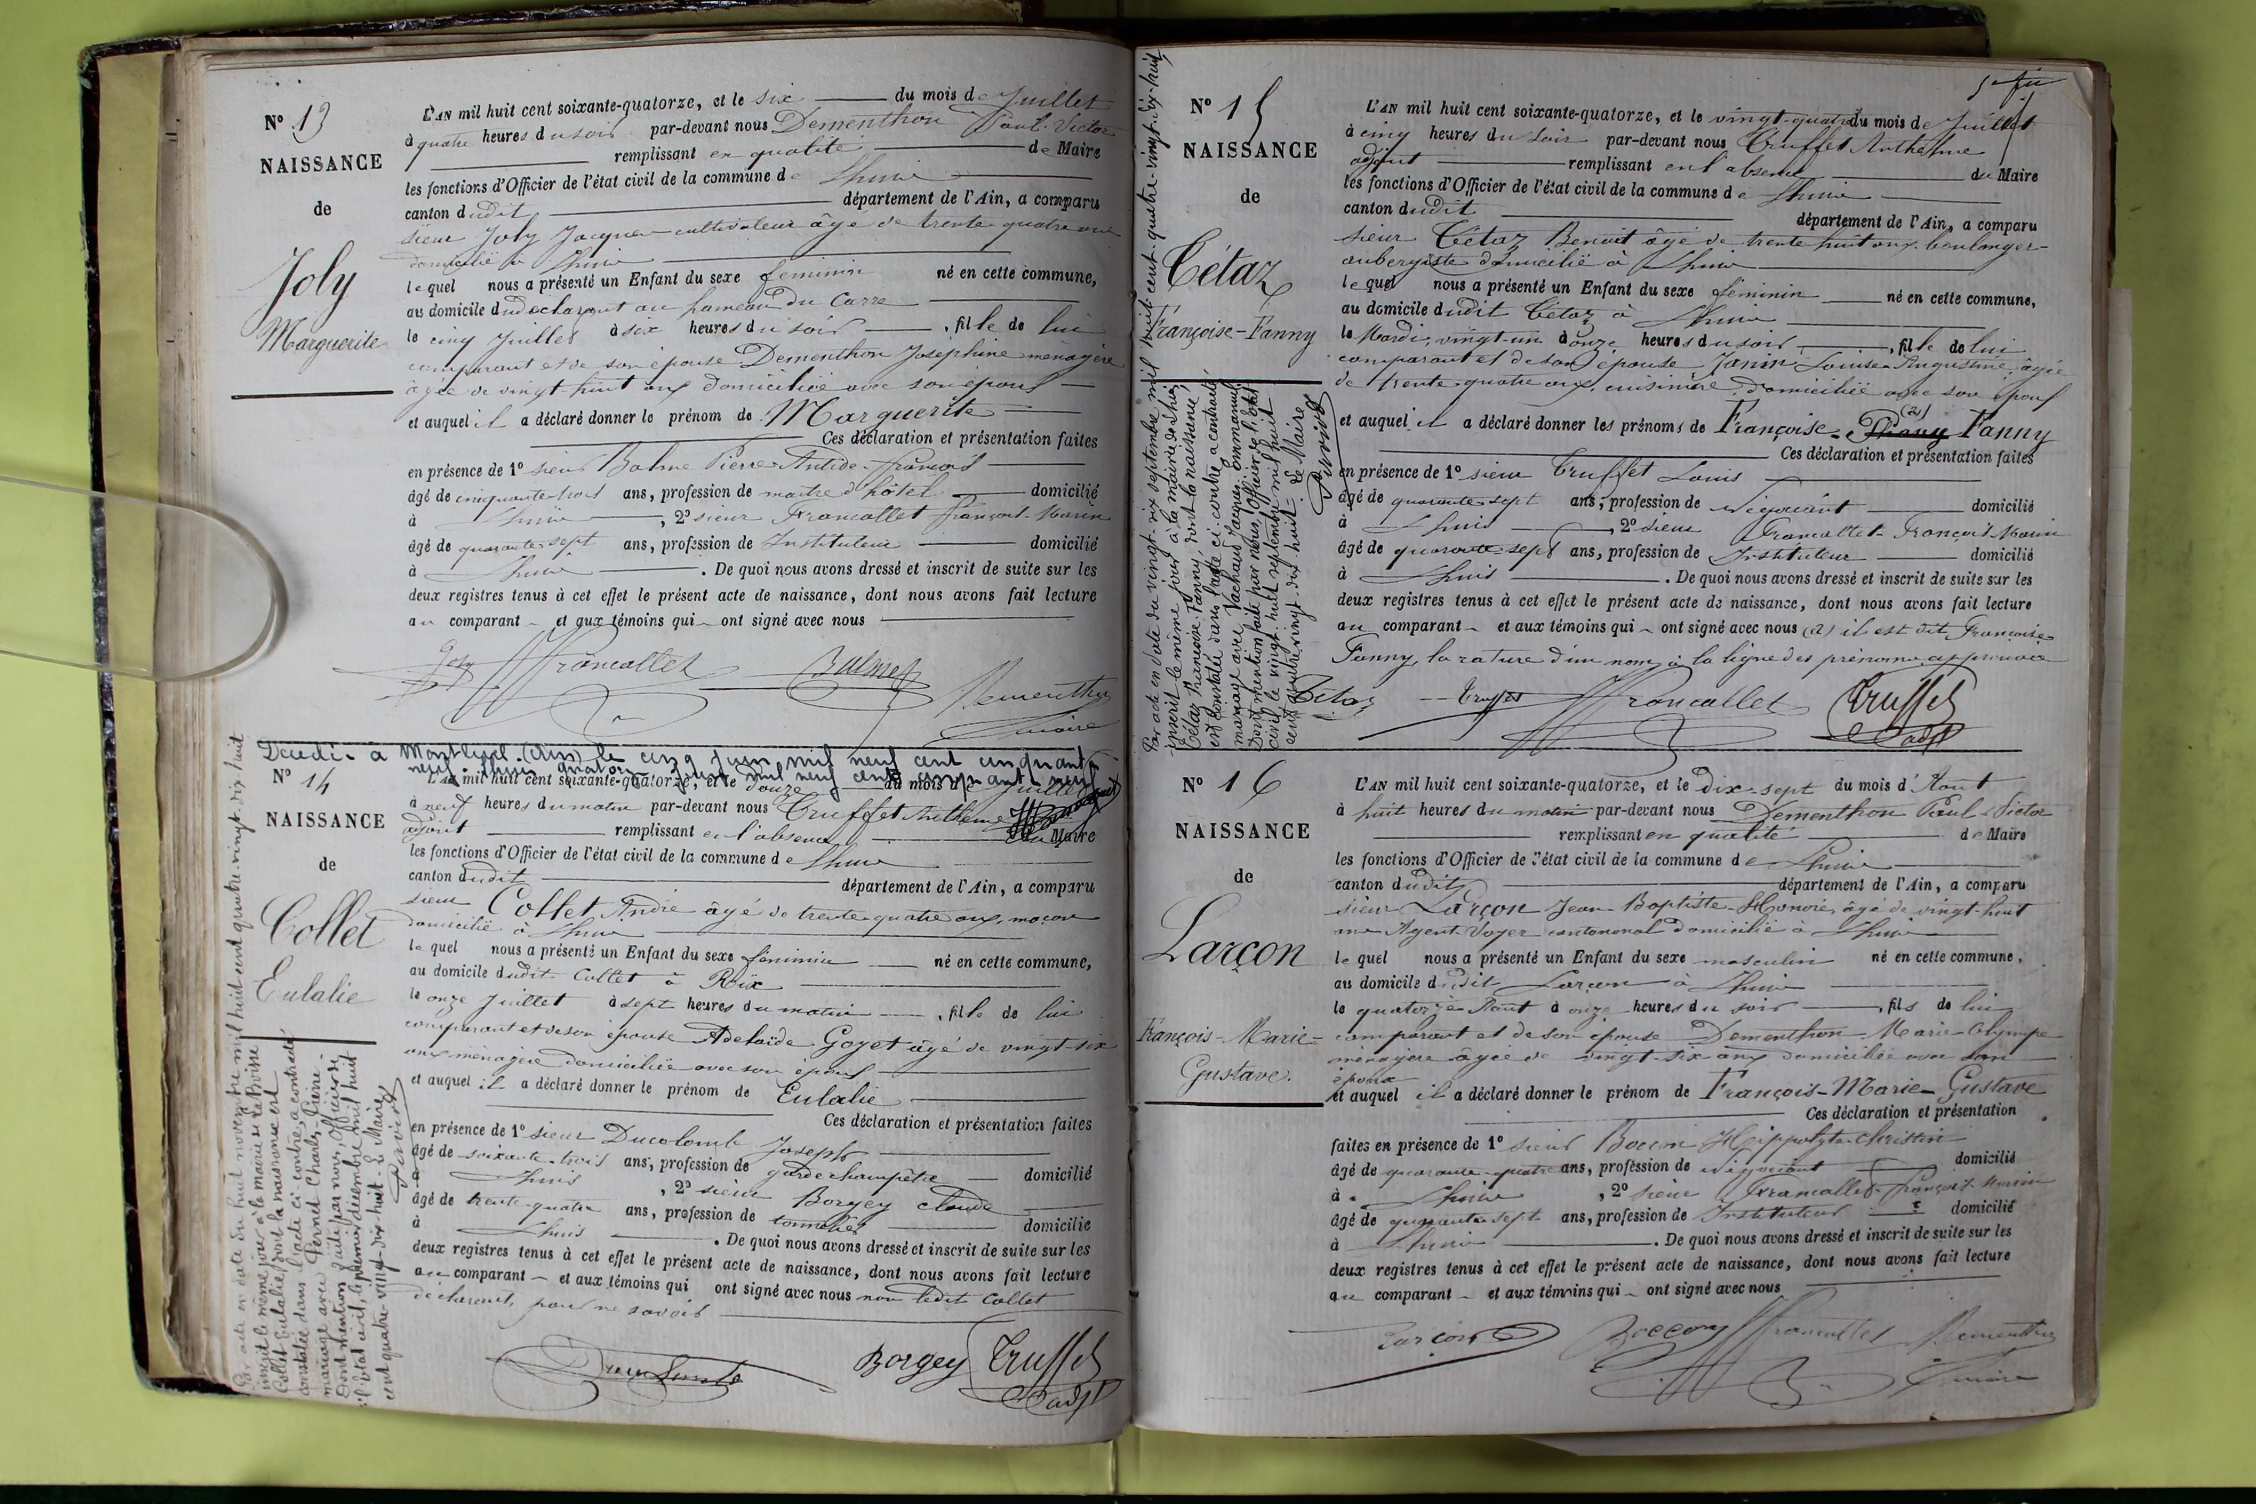 N° 13
NAISSANCE
de
Joly
Marguerite
L'AN mil huit cent soixante-quatorze, et le six du mois de Juillet
à quatre heures du soir par-devant nous Dementhon Paul-Victor
remplissant en qualité de Maire
les fonctions d'Officier de l'état civil de la commune de Lhuis
canton dudit département de l'Ain, a comparu
sieur Joly Jacques cultivateur âgé de trente quatre ans
domicilié à Lhuis
lequel nous a présenté un Enfant du sexe féminin né en cette commune,
au domicile du déclarant au hameau du Carre
le cinq Juillet à six heures du soir, fille de lui
comparant et de son épouse Dementhon Josephine ménagère
âgée de vingt huit ans domiciliée avec son époux
et auquel il a déclaré donner le prénom de Marguerite
Ces déclaration et présentation faites
en présence de 1° sieur Balme Pierre Antide François
âgé de cinquante trois ans, profession de maître d'hôtel domicilié
à Lhuis, 2° sieur Francallet François-Marin
âgé de quarante sept ans, profession de Instituteur domicilié
à Lhuis. De quoi nous avons dressé et inscrit de suite sur les
deux registres tenus à cet effet le présent acte de naissance, dont nous avons fait lecture
au comparant et aux témoins qui ont signé avec nous
Joly Francallet Balme Dementhon
maire
Décédée à Montluel (Ain) le cinq juin mil neuf cent cinquante
neuf. Lhuis quatorze juin mil neuf cent cinquante neuf
N° 14
NAISSANCE
de
Collet
Eulalie
L'AN mil huit cent soixante-quatorze, et le douze du mois de Juillet
à neuf heures du matin par-devant nous Truffet Anthelme
adjoint remplissant en l'absence du Maire
les fonctions d'Officier de l'état civil de la commune de Lhuis
canton dudit département de l'Ain, a comparu
sieur Collet André âgé de trente quatre ans, maçon
domicilié à Lhuis
lequel nous a présenté un Enfant du sexe féminin né en cette commune,
au domicile dudit Collet à Rix
le onze Juillet à sept heures du matin, fille de lui
comparant et de son épouse Adelaïde Goyet âgé de vingt-six
ans ménagère domiciliée avec son époux
et auquel il a déclaré donner le prénom de Eulalie
Ces déclaration et présentation faites
en présence de 1° sieur Ducolomb Joseph
âgé de soixante trois ans, profession de garde champêtre domicilié
à Lhuis, 2° sieur Borgey Claude
âgé de trente-quatre ans, profession de tonnelier domicilié
à Lhuis. De quoi nous avons dressé et inscrit de suite sur les
deux registres tenus à cet effet le présent acte de naissance, dont nous avons fait lecture
au comparant et aux témoins qui ont signé avec nous non ledit Collet
déclarant, pour ne savoir
Ducolomb Borgey Truffet
adjt
Par acte en date du huit novembre mil huit cent quatre-vingt-dix-huit
inscrit le même jour à la mairie de la Boisse
Collet Eulalie, dont la naissance est
constatée dans l'acte ci contre, a contracté
mariage avec Pernet Charles-Pierre
Dont mention faite par nous, Officier de
l'état civil, le premier décembre mil huit
cent quatre-vingt-dix-huit. Le Maire
N° 15
NAISSANCE
de
Cétaz
Françoise-Fanny
L'AN mil huit cent soixante-quatorze, et le vingt-quatre du mois de Juillet
à cinq heures du soir par-devant nous Truffet Anthelme
adjoint remplissant en l'absence du Maire
les fonctions d'Officier de l'état civil de la commune de Lhuis
canton dudit département de l'Ain, a comparu
sieur Cétaz Benoît âgé de trente huit ans, boulanger-
aubergiste domicilié à Lhuis
lequel nous a présenté un Enfant du sexe féminin né en cette commune,
au domicile dudit Cétaz à Lhuis
le Mardi, vingt-un à onze heures du soir, fille de lui
comparant et de son épouse Janin Louise Augustine, âgée
de trente quatre ans, cuisinière domiciliée avec son époux
et auquel il a déclaré donner les prénoms de Françoise (a) Fanny
Ces déclaration et présentation faites
en présence de 1° sieur Truffet Louis
âgé de quarante sept ans, profession de Négociant domicilié
à Lhuis, 2° sieur Francallet François Marin
âgé de quarante sept ans, profession de Instituteur domicilié
à Lhuis. De quoi nous avons dressé et inscrit de suite sur les
deux registres tenus à cet effet le présent acte de naissance, dont nous avons fait lecture
au comparant et aux témoins qui ont signé avec nous (a) il est dit Françoise
Fanny, la rature d'un nom à la ligne des prénoms approuvée
Cétaz Truffet Francallet Truffet
adjt
Par acte en date du vingt-six septembre mil huit cent quatre-vingt-dix-huit,
inscrit le même jour à la mairie de Lhuis,
Cétaz Françoise-Fanny, dont la naissance
est constatée dans l'acte ci-contre, a contracté
mariage avec Vachaud Jacques Emmanuel
Dont mention faite par nous, Officier de l'état
civil le vingt-huit septembre mil huit
cent quatre vingt-dix huit. Le Maire
N° 16
NAISSANCE
de
Larçon
François-Marie-
Gustave.
L'AN mil huit cent soixante-quatorze, et le dix-sept du mois d'Août
à huit heures du matin par-devant nous Dementhon Paul-Victor
remplissant en qualité de Maire
les fonctions d'Officier de l'état civil de la commune de Lhuis
canton dudit département de l'Ain, a comparu
sieur Larçon Jean-Baptiste-Honoré, âgé de vingt-huit
ans Agent-Voyer cantonal domicilié à Lhuis
lequel nous a présenté un Enfant du sexe masculin né en cette commune,
au domicile dudit Larçon à Lhuis
le quatorze Août à onze heures du soir, fils de lui
comparant et de son épouse Dementhon Marie-Olympe
ménagère âgée de vingt-six ans domiciliée avec son
époux
et auquel il a déclaré donner le prénom de François-Marie-Gustave
Ces déclaration et présentation
faites en présence de 1° sieur Boccon Hippolyte-Christin
âgé de quarante-quatre ans, profession de Négociant domicilié
à Lhuis, 2° sieur Francallet François Marin
âgé de quarante sept ans, profession de Instituteur domicilié
à Lhuis. De quoi nous avons dressé et inscrit de suite sur les
deux registres tenus à cet effet le présent acte de naissance, dont nous avons fait lecture
au comparant et aux témoins qui ont signé avec nous
Larçon Boccon Francallet Dementhon
maire